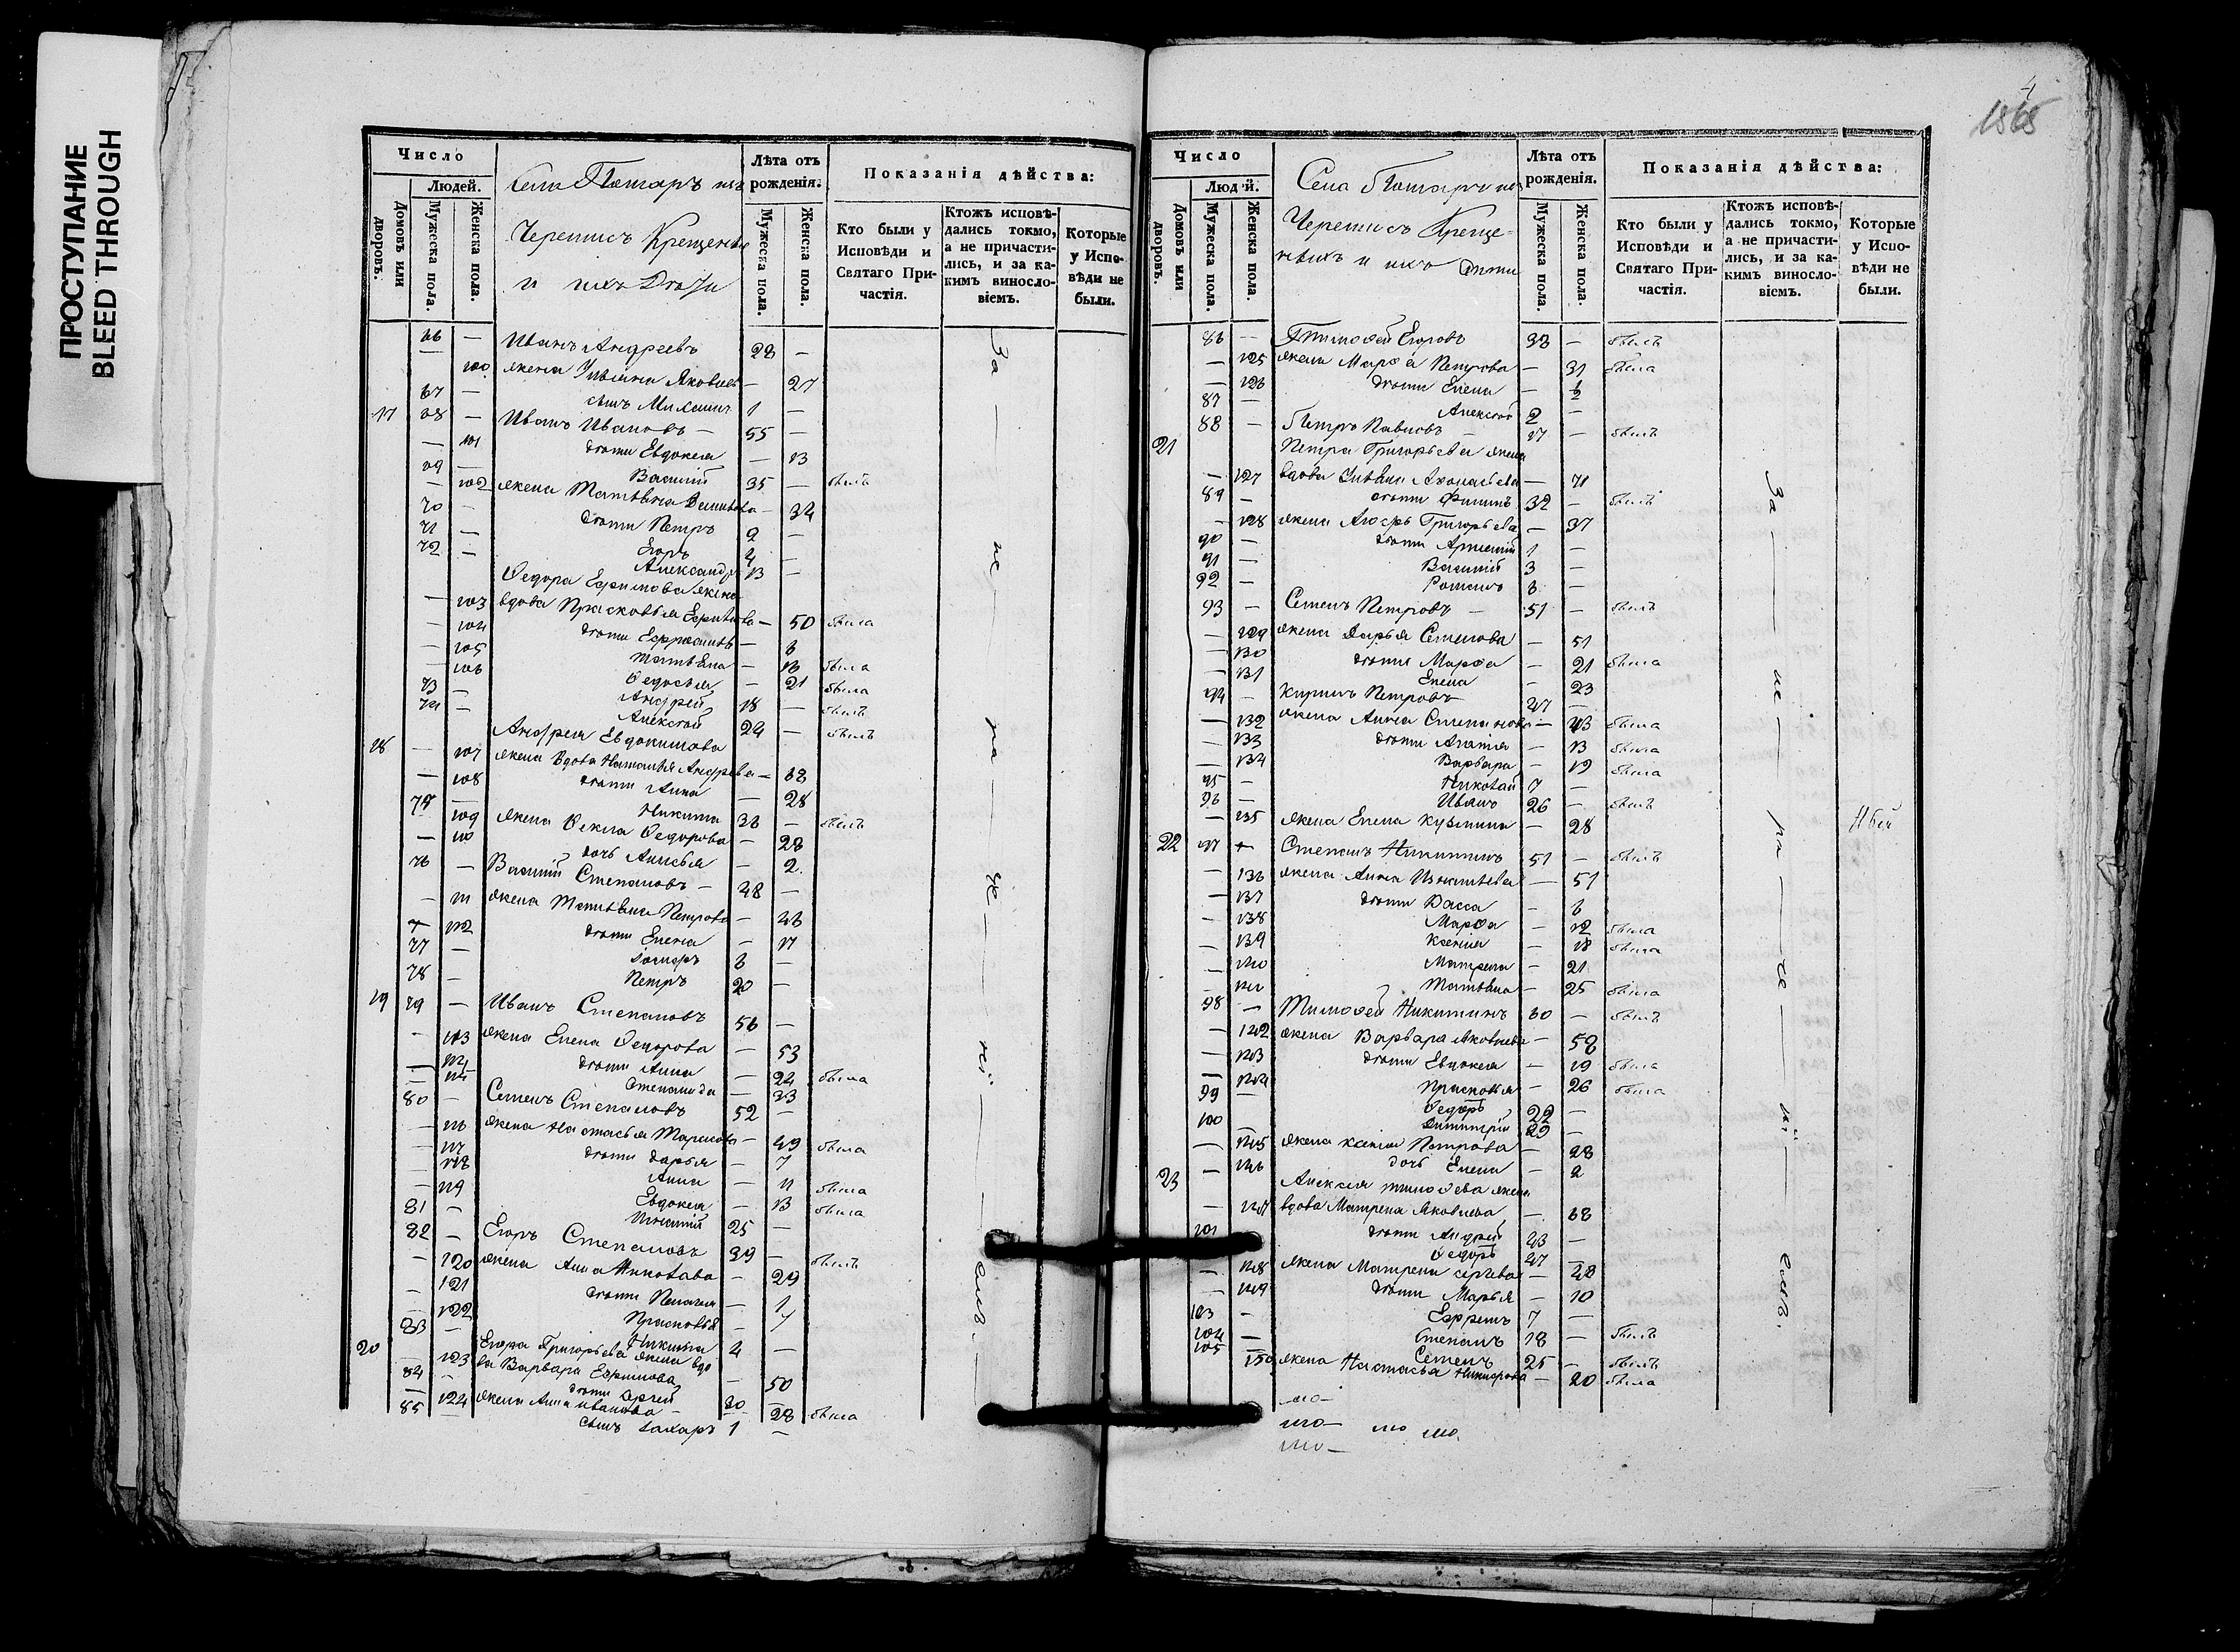 ПРОСТУПАНИЕ
BLEED THROUGH
Число
Людей.
Домовъ или дворовъ.
Мужеска пола.
Женска пола.
Села
Черемисъ Крещеныхъ
и ихъ Дѣти
Лѣта отъ рожденія.
Мужеска пола.
Женска пола.
Показанія дѣйства:
Кто были у Исповѣди и Святаго Причастія.
Ктожъ исповѣдались токмо, а не причастились, и за какимъ винословіемъ.
Которые у Исповѣди не были.
66 — Иванъ Андреевъ 28 —
— 100 жена Ульяна Яковлева — 27
67 — сынъ 1 —
17 68 — Иванъ Ивановъ — 55 —
— 101 дѣти Евдокея — 13
69 — Василий 35 — былъ
— 102 жена Татьяна — 34
70 — дѣти Петръ 2 —
71 — Егоръ 4 —
72 — Александръ 13 —
Ѳедора Ефимова жена
— 103 вдова Прасковья — 50 была
— 104 дѣти — 8
— 105 Татьяна — 18 была
— 106 Ѳедосья — 21 была
73 — Андрей 18 — былъ
74 — Алексѣй 24 — былъ
18 Андрея Евдокимова
— 107 жена вдова Наталья Андреева — 62
— 108 дѣти Анна — 28
75 — Никита 36 — былъ
— 109 жена Ѳекла Ѳедорова — 28
— 110 дочь Анисья — 2
76 — Василий Степановъ — 48 —
— 111 жена Татьяна Петрова — 46
— 112 дѣти Елена — 17
77 — 8 —
78 — Петръ 20 —
19 79 — Иванъ Степановъ 56 —
— 113 жена Елена Ѳедорова — 53
— 114 дѣти Анна — 24 была
— 115 Степанида — 33
80 — Семенъ Степановъ 52 —
— 116 жена Настасья — 49 была
— 117 дѣти Дарья — 7
— 118 Анна — 11 была
— 119 Евдокея — 13 была
81 — 25 —
82 — Егоръ Степановъ 39 — былъ
— 120 жена Анна Николаева — 29
— 121 дѣти Пелагея — 1
— 122 Прасковья — 7
83 — Никита 4 —
20 Егора Григорьева жена вдо
— 123 ва Варвара Ефимова — 50
84 — дѣти Сергей 30 —
— 124 жена Анна Иванова — 28 была
85 — сынъ Захаръ 1 —
За — не — на — че — ні — емъ.
4
1868
Число
Людей.
Домовъ или дворовъ.
Мужеска пола.
Женска пола.
Села
Черемисъ Креще-
ныхъ и ихъ дѣти
Лѣта отъ рожденія.
Мужеска пола
Женска пола.
Показанія дѣйства:
Кто были у Исповѣди и Святаго Причастія.
Ктожъ исповѣдались токмо, а не причастились, и за какимъ винословіемъ.
Которые у Исповѣди не были.
86 — Тимоѳей Егоровъ 33 — былъ
— 125 жена Марѳа Петрова — 31 была
— 126 дѣти Елена —
87 — Алексѣй 2 —
88 — Петръ Павловъ 17 — былъ
21 Петра Григорьева жена
— 127 вдова Ульяна — 71
89 — дѣти Филипъ 32 — былъ
— 128 жена Григорьева — 37
90 — дѣти 1 —
91 — Василий 3 —
92 — Романъ 8 —
93 — Семенъ Петровъ — 51 — былъ
— 129 жена Дарья Семенова — 51
— 130 дѣти Марѳа — 21 была
— 131 Елена — 23
94 — Кирилъ Петровъ 47 —
— 132 жена Анна Степанова — 43 была
— 133 дѣти Агафія — 13 была
— 134 Варвара — 19 была
95 — Николай 7 —
96 — Иванъ 26 — былъ
— 135 жена Елена Кузьмина — 28
22 97 — Степанъ Никитинъ 51 — былъ
— 136 жена Анна Игнатьева — 51
— 137 дѣти Васса — 8
— 138 Марѳа — 12 была
— 139 Ксенія — 18 была
— 140 Матрена — 21
— 141 Татьяна — 25 была
98 — Тимоѳей Никитинъ 60 — былъ
— 142 жена Варвара Яковлева — 58
— 143 дѣти Евдокея — 19 была
— 144 Прасковья — 26 была
99 — Ѳедоръ 22 —
100 — Димитрій 29 —
— 145 жена Ксенія Петрова — 28
— 146 дочь Елена — 2
23 Алексея Тимоѳева жена
— 147 вдова Матрена Яковлева — 68
101 дѣти Андрей 43 —
Ѳедоръ 47 —
— 148 жена Матрена Сергѣева — 48
— 149 дѣти Марья — 10
103 — Ефремъ 7 —
104 — Степанъ 18 — былъ
105 — Семенъ 25 — былъ
150 жена Настасья — 20 была
За — не — на — че — ні — емъ.